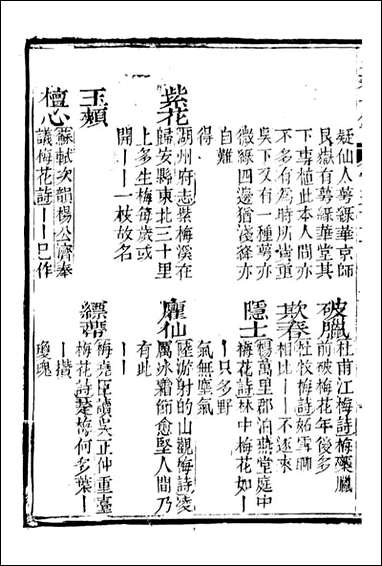 疑仙人萼綠華京師
艮嶽有萼綠華堂其
下專植此本人間亦
不多有爲時所貴重
吳下又有一種萼亦
微綠四邊猶淺絳亦
自難
得
紫花
湖州府志紫梅溪在
歸安縣東北三十里
上多生梅每歲或
開丨丨一枝故名
玉頰
檀心
蘇軾次韻楊公濟奉
議梅花詩丨丨已作
破臘
杜甫江梅詩梅蘂臘
前破梅花年後多
欺春
杜牧梅詩妬雪聊
相比丨丨不逐來
隱士
楊萬里郡泊燕堂庭中
梅花詩林中梅花如丨
丨只多野
氣無塵氣
臞仙
陸游射的山觀梅詩凌
厲冰霜節愈堅人間乃
有此
丨丨
縹蔕
梅堯臣讀吳正仲重臺
梅花詩楚梅何多葉丨
丨攢
瓊瑰